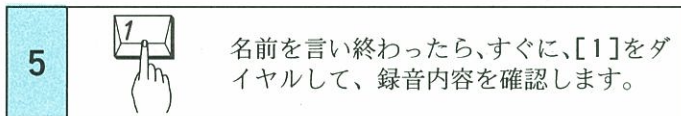 5
1
名前を言い終わったら、すぐに、[1]をダ
イヤルして、録音内容を確認します。